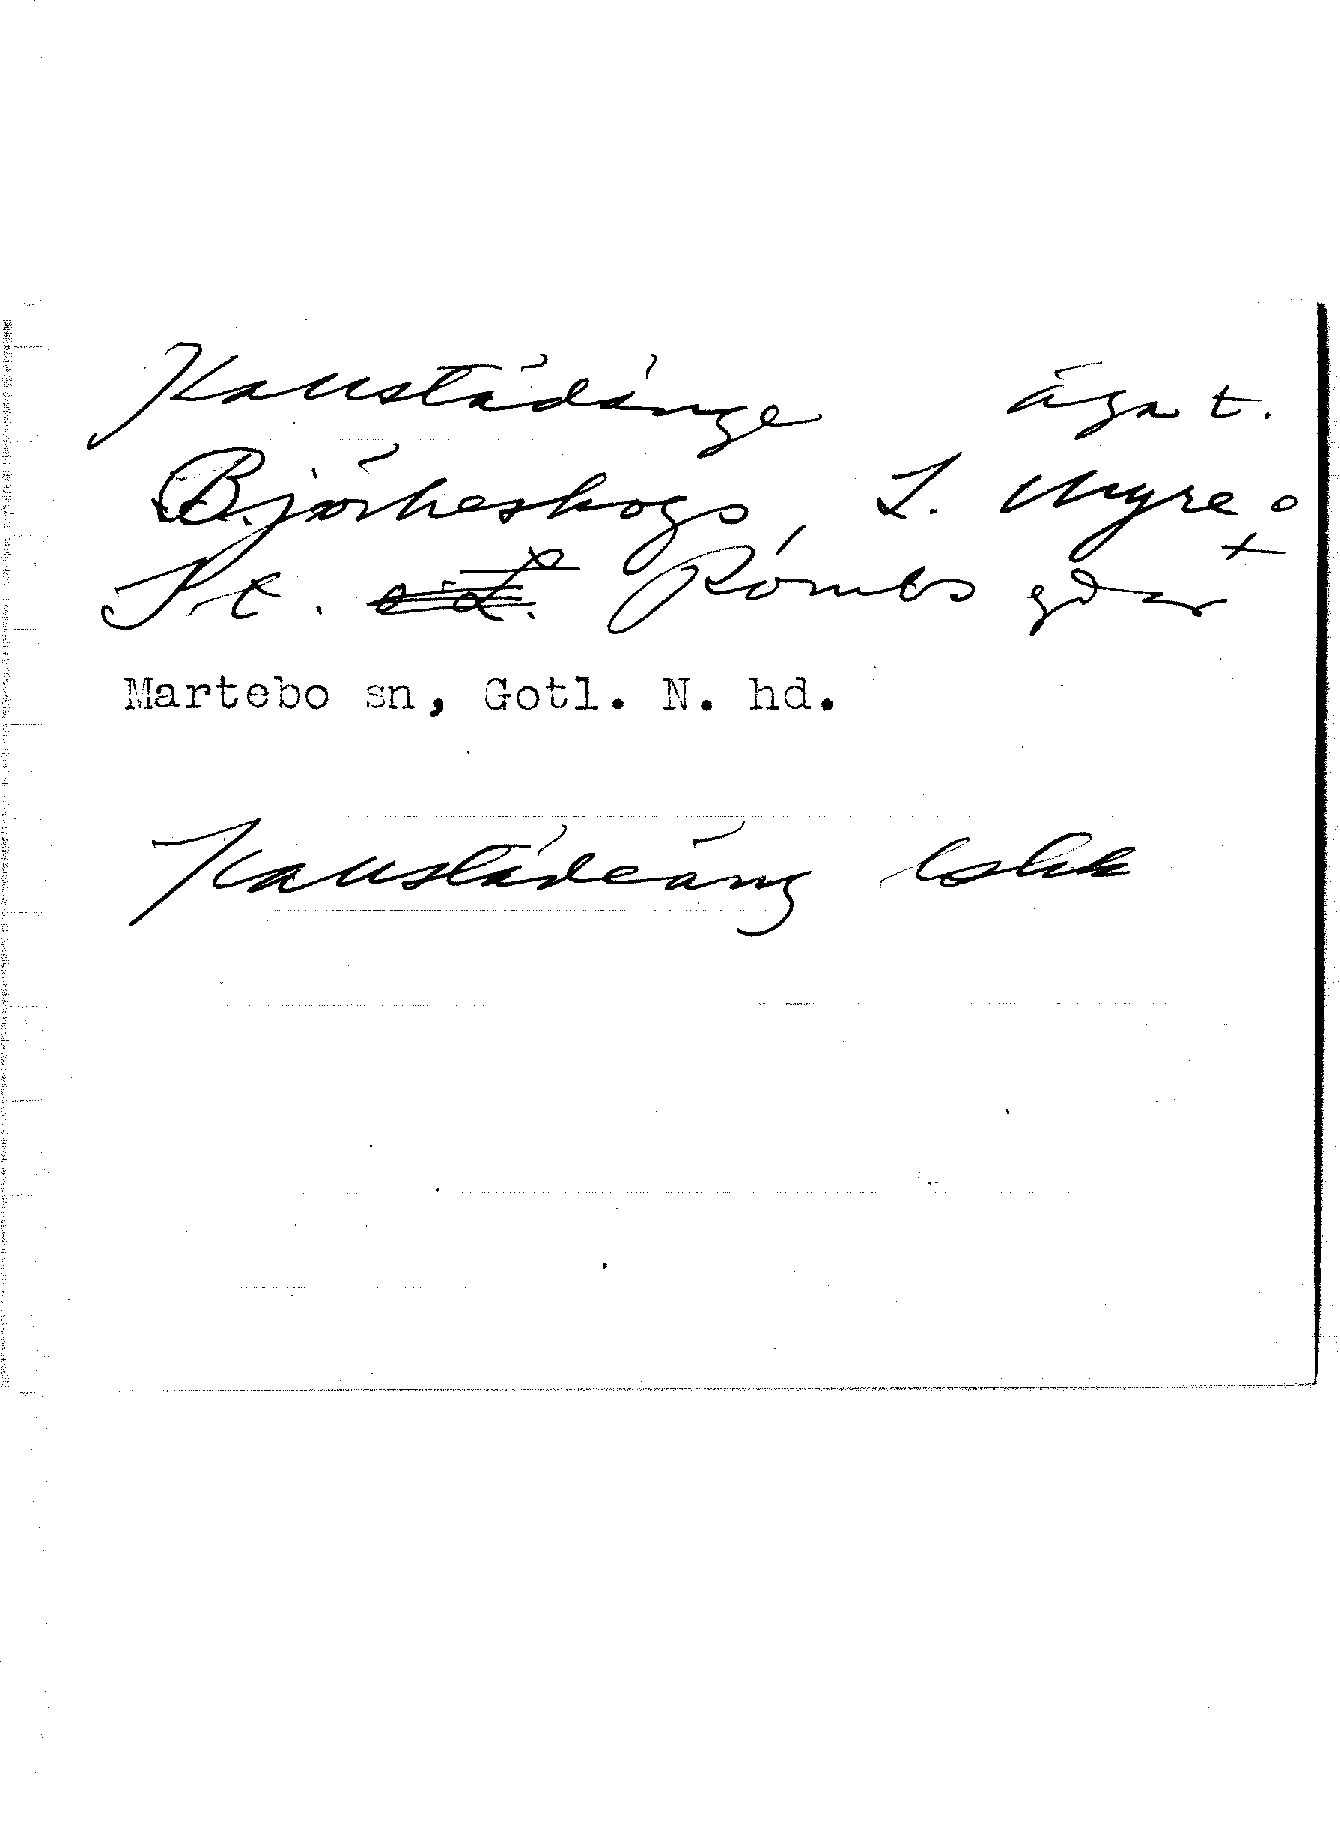 Kaustädänge ägat.
Björkeskogs, L. Myre o
St. o L. Römbs gdar
Martebo sn, Gotl. N. hd.
Kaustädeäng Eskk